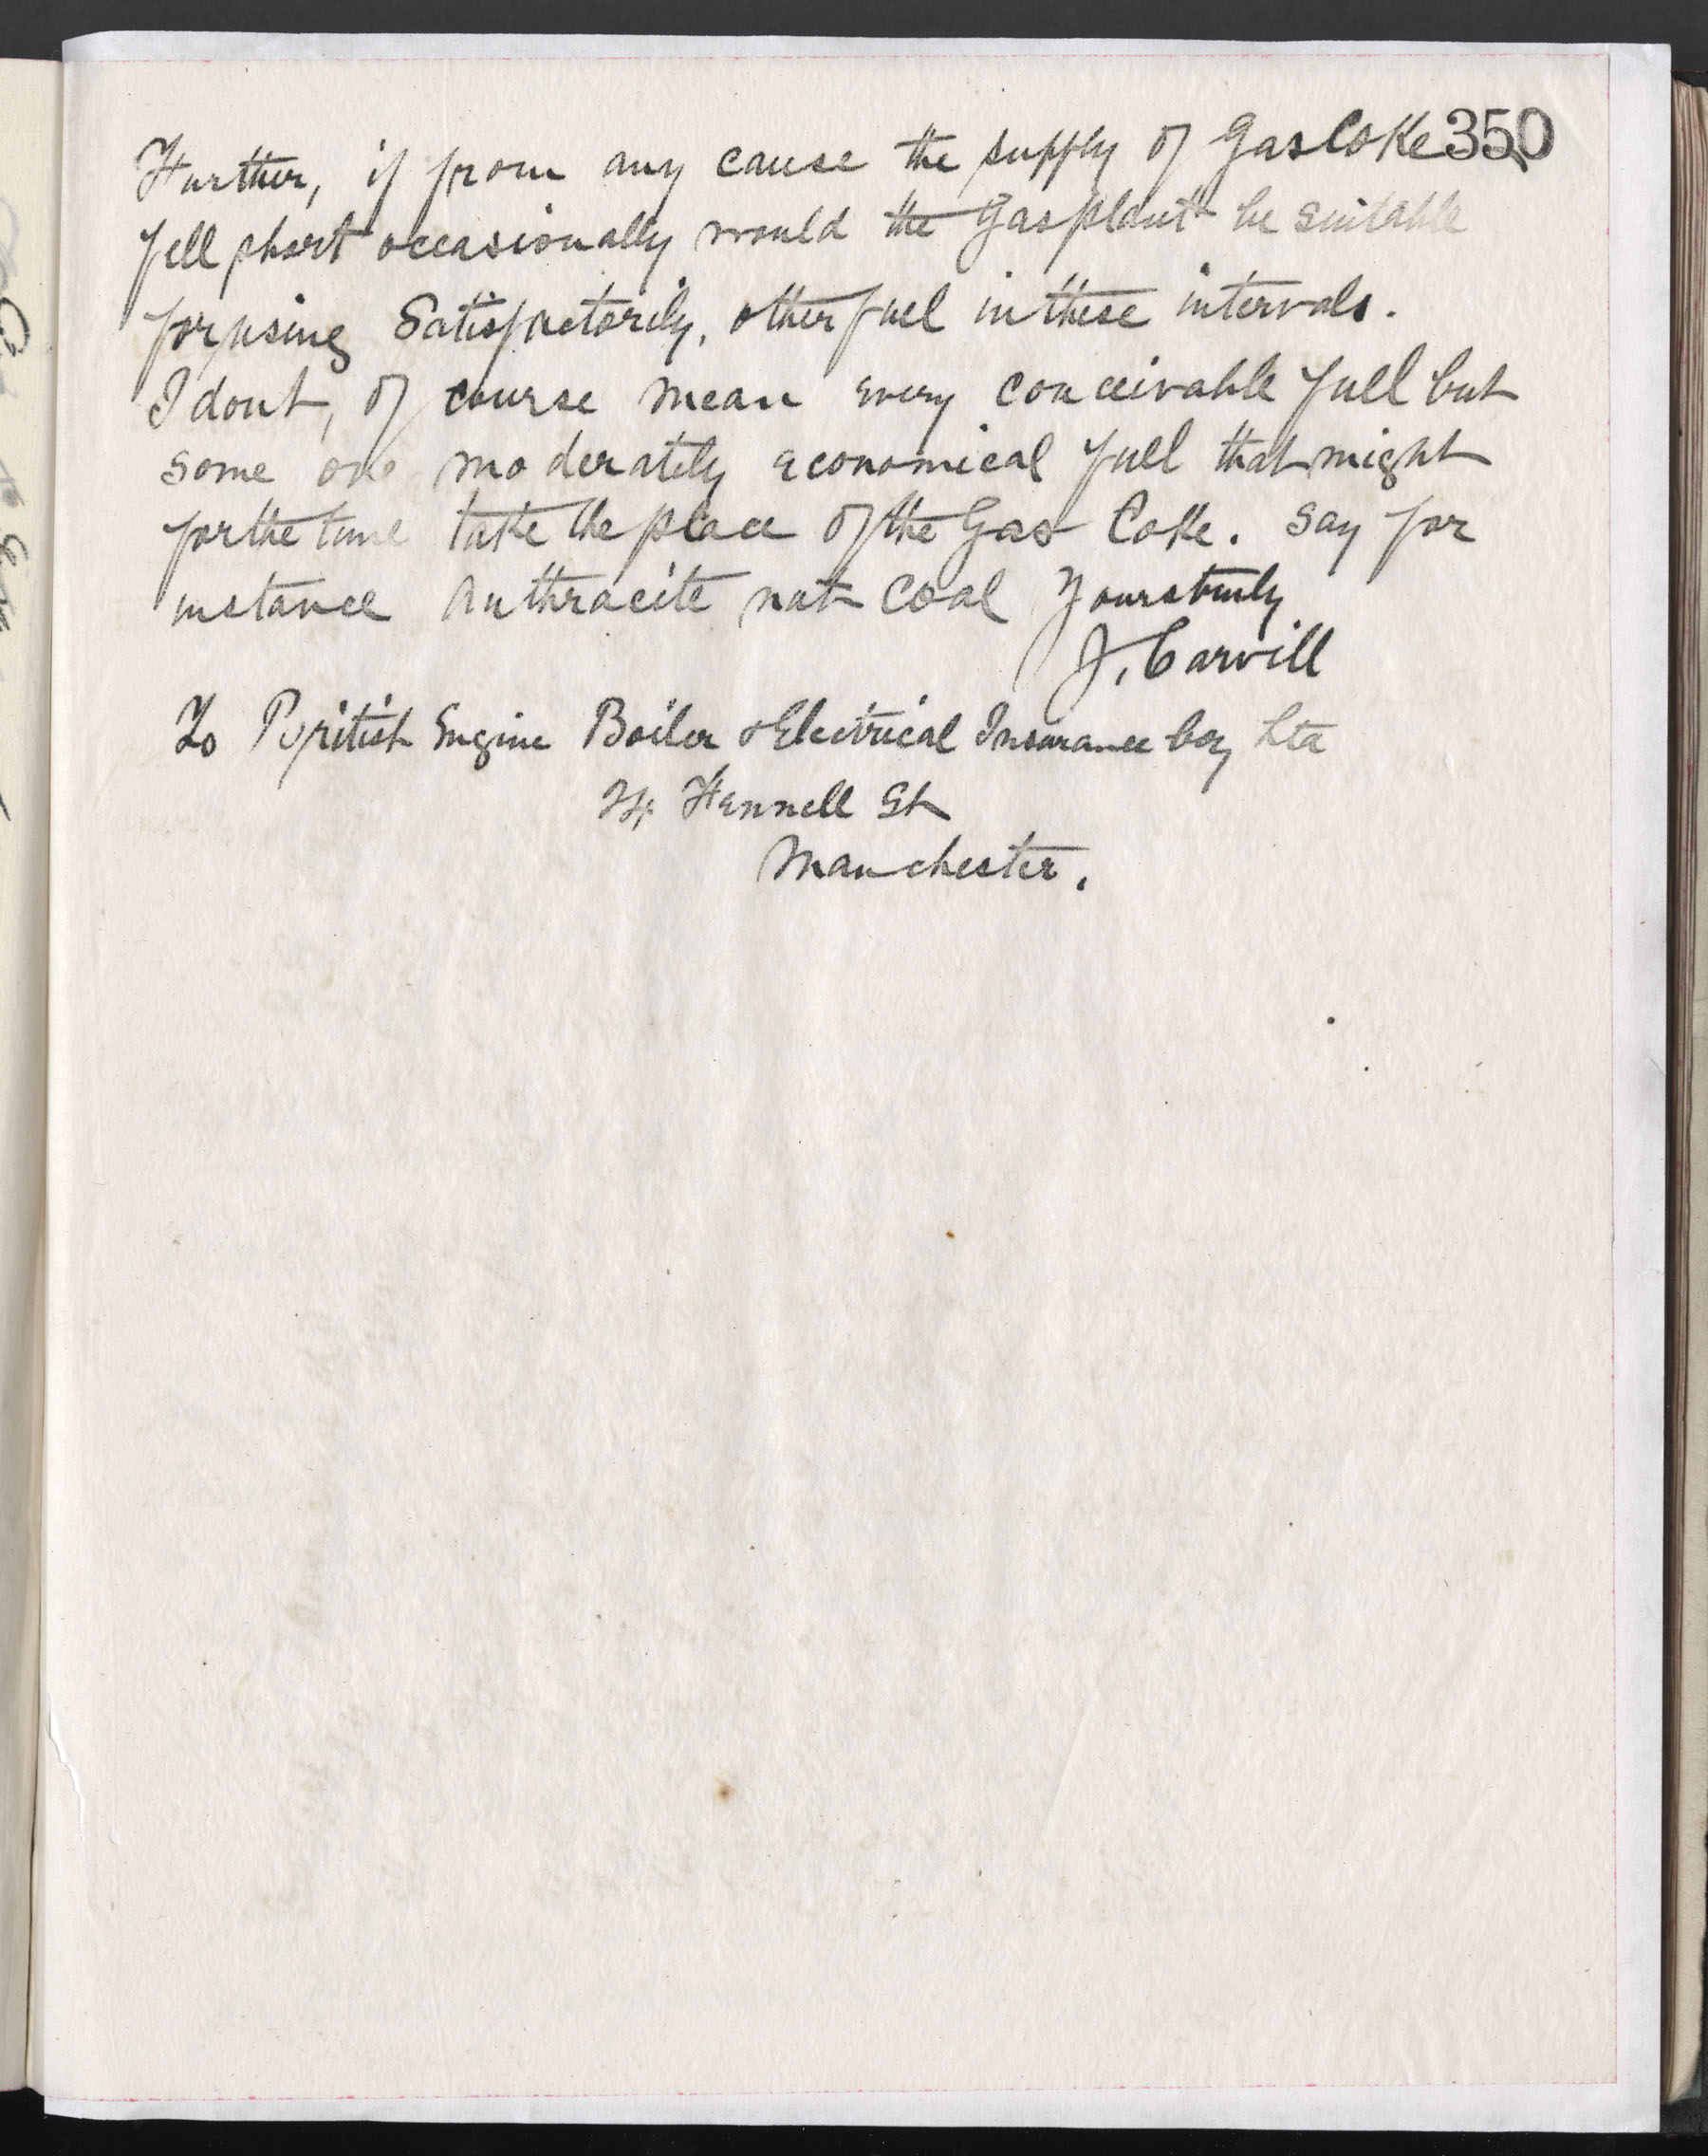 350
Further, if from any cause the supply of Gas Coke
fell short occasionally would the Gas plant be suitable
for using Satisfactorily, other fuel in these intervals.
I dont, of course mean every conceivable fuel but
some one moderately economical fuel that might
for the time take the place of the Gas Coke. Say for
instance Anthracite nut Coal Yours truly
J. Carvill
To British Engine Boiler & Electrical Insurance Coy Ltd
24 Fennell St
Manchester.